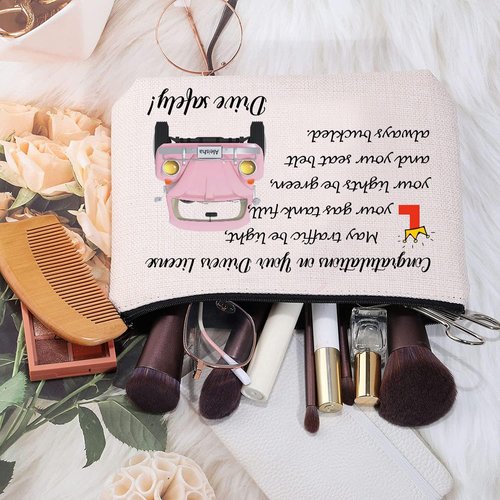 Congratulations on Your Drivers License
May traffic be light,
your gas tank full,
your lights be green,
and your seat belt
always buckled.
Drive safely!
L
Aleisha